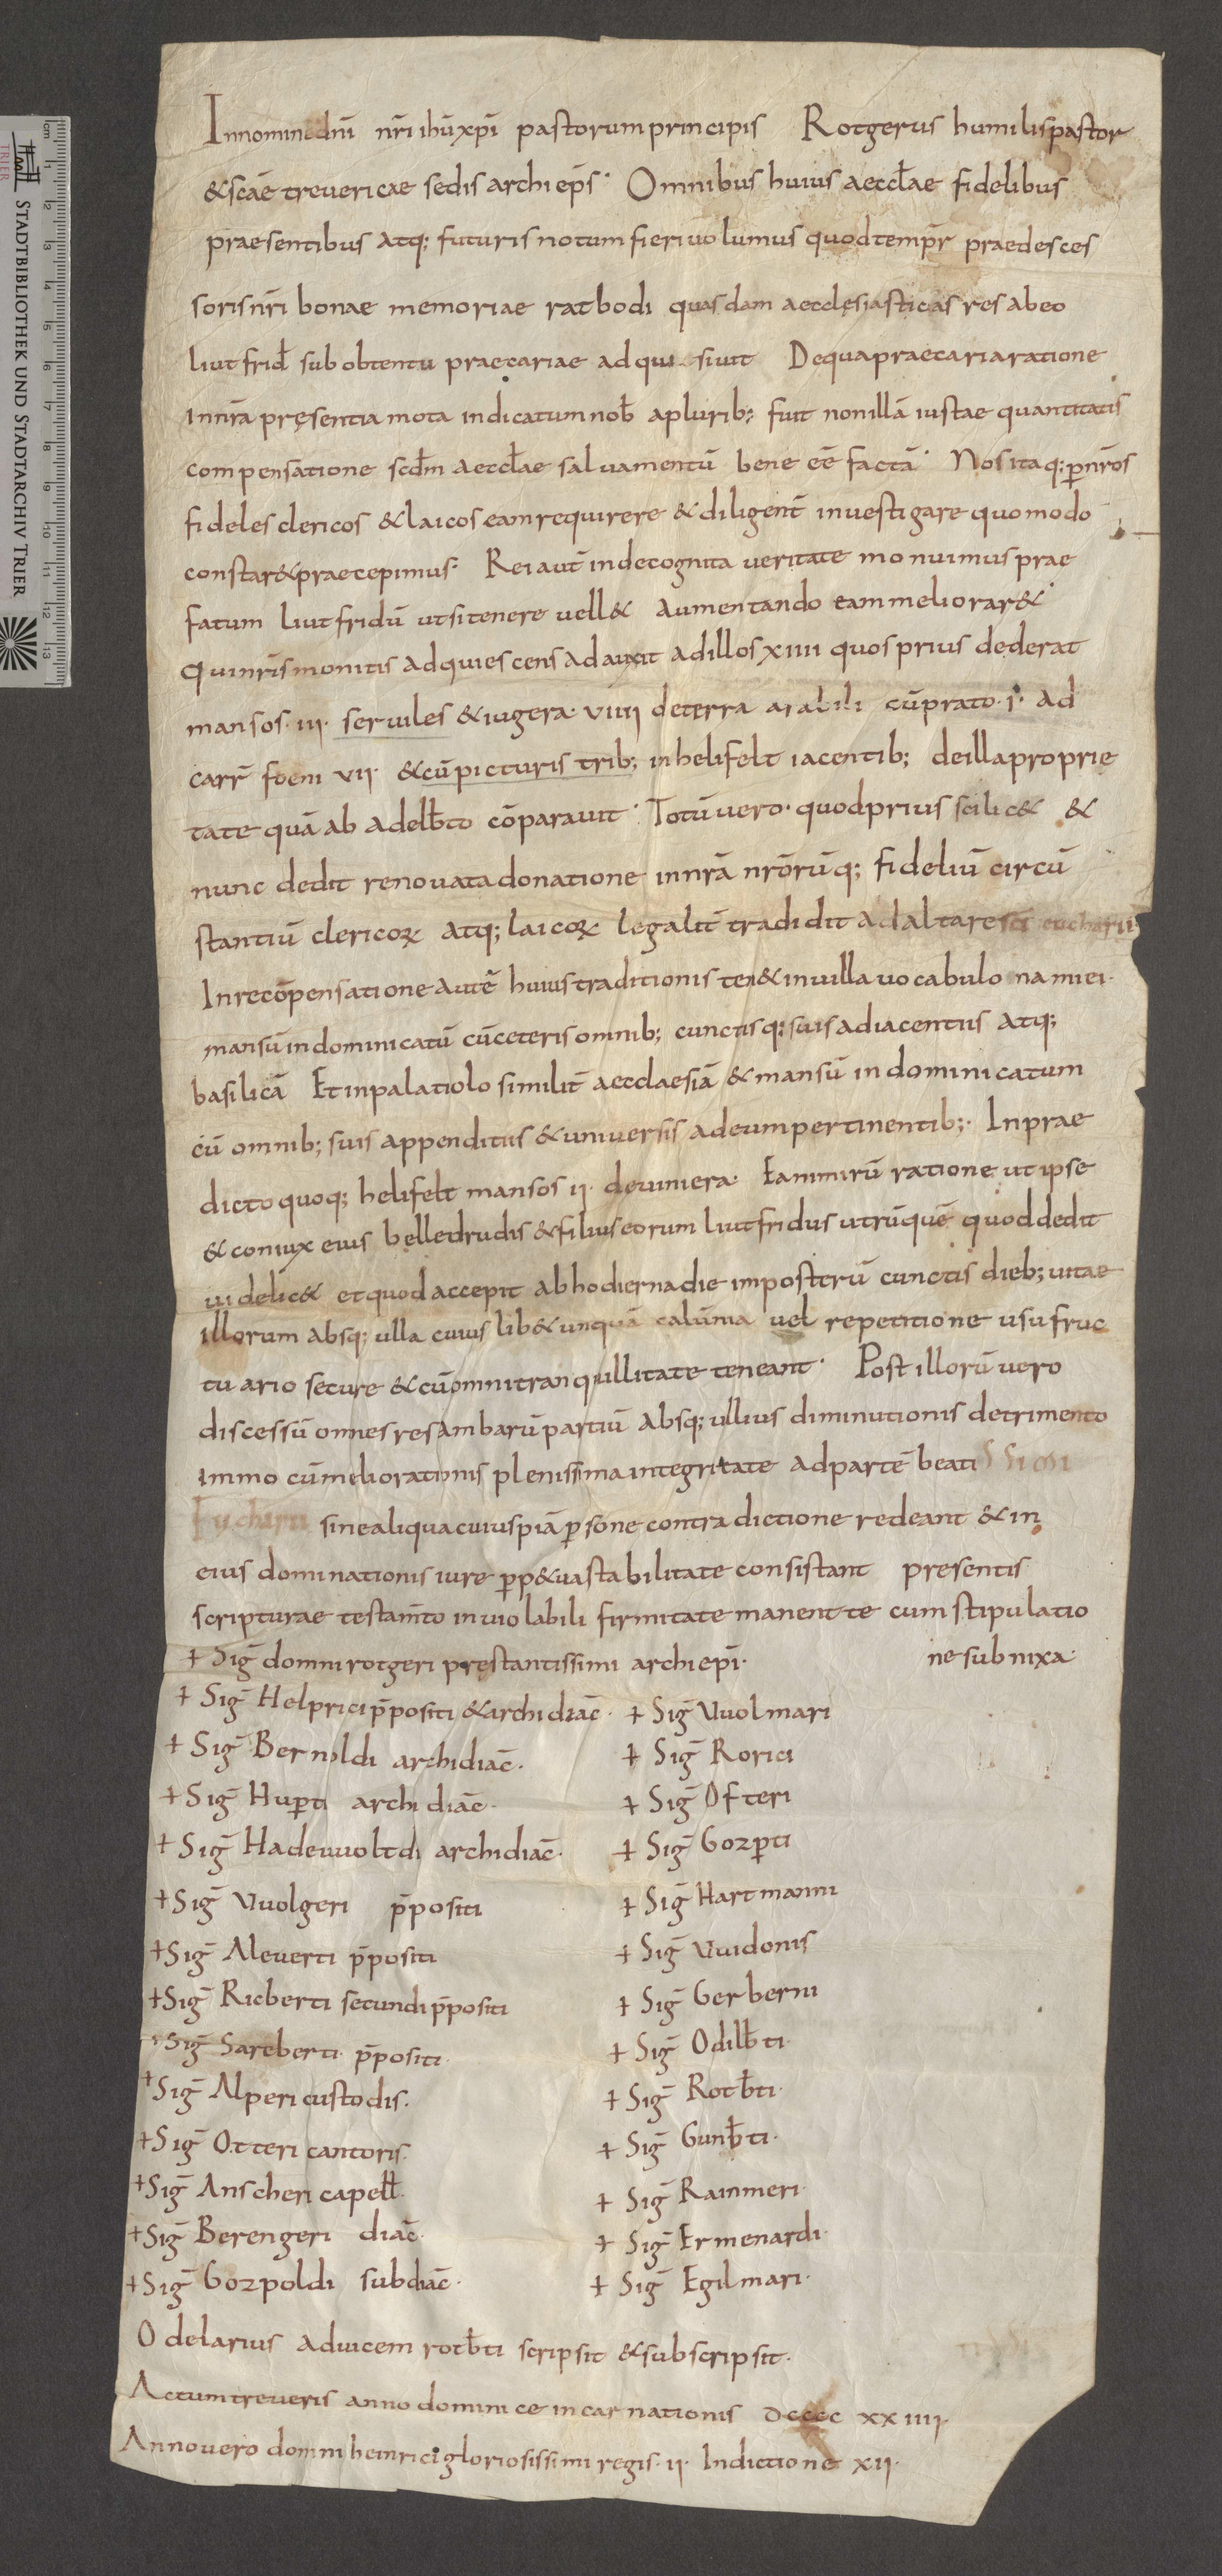 In nomine dnī nrī ihū xpī pastorum principis Rotgerus humilis pastor
& scāe trevericae sedis archi eps̄. Omnibus huius aeccƚae fidelibus
praesentibus atq; futuris notum fieri volumus quod tempr̄ praedesces
soris nrī bonae memoriae ratbodi quasdam aecclesiasticas res ab eo
liutfrid sub obtentu praecariae adquisivit De qua praecaria ratione
in nrā pręsentia mota indicatum nob a plurib; fuit non illā iustae quantitatis
compensatione scdm aeccƚae salvamentū bene eē factā. Nos itaq; p nrōs
fideles clericos & laicos eam requirere & diligent̄ investigare quomodo
constar& praecepimus. Rei aut̄ inde cognita veritate monuimus prae
fatum liutfridū ut si tenere vell& aumentando eam meliorar&.
Qui nrīs monitis adquiescens adauxit ad illos xiiii quos prius dederat
mansos iii. serviles & iugera. viiii de terra arabili cū prato. i. ad
carr̄ foeni vii & cū picturis trib; in helifelt iacentib; de illa proprie
tate quā ab adelbto cōparavit. Totū vero quod prius scilic& &
nunc dedit renovata donatione in nrā nrōrūq; fideliū circū
stantiū clericoꝝ atq; laicoꝝ legalit̄ tradidit ad altare scī eucharii.
In recōpensatione autē huius traditionis ten& in villa vocabulo namiei.
mansū indominicatū cū ceteris omnib; cunctisq; suis adiacentiis atq;
basilicā Et in palatiolo similit̄ aecclaesiā & mansū indominicatum
cū omnib; suis appenditiis & universis ad eum pertinentib;. In prae
dicto quoq; helifelt mansos ii. de viniera. Ea nimirū ratione ut ipse
& coniux eius belledrudis & filius eorum liutfridus utrūquē quod dedit
videlic& et quod accepit ab hodierna die imposterū cunctis dieb; vitae
illorum absq; ulla cuiuslib& unquā calūnia vel repetitione usufruc
tuario secure & cū omni tranquillitate teneant. Post illorū vero
discessū omnes res ambarū partiū absq; ullius diminutionis detrimento
immo cū meliorationis plenissima integritate ad partē beati
Eucharii sine aliqua cuiuspiā psone contradictione redeant & in
eius dominationis iure pp&ua stabilitate consistant presentis
scripturae testam̄to inviolabili firmitate manente cum stipulatio
ne subnixa.
+ Siḡ domni rotgeri pręstantissimi archiepī.
+ Siḡ Helprici p̄positi & archidiac̄. + Siḡ Vuolmari
+ Siḡ Bernoldi archidiac̄. + Siḡ Rorici
+ Siḡ Hupti archidiac̄. + Siḡ Ofteri
+ Siḡ Hadeuuoltdi archidiac̄. + Siḡ Gozpti
+ Siḡ Vuolgeri p̄positi + Siḡ Hartmanni
+ Siḡ Aleverti p̄positi + Siḡ Vuidonis
+ Siḡ Ricberti secundi p̄positi + Siḡ Gerberni
+ Siḡ Sareberti p̄positi. + Siḡ Odilbti.
+ Siḡ Alperi custodis. + Siḡ Rotbti.
+ Siḡ Otteri cantoris. + Siḡ Gunbti.
+ Siḡ Anscheri capeƚƚ. + Siḡ Rainneri.
+ Siḡ Berengeri diac̄. + Siḡ Ermenardi.
+ Siḡ Gozpoldi subdiac̄. + Siḡ Egilmari.
Odelarius ad vicem rotbti scripsit & subscripsit.
Actum treveris anno dominice incarnationis dcccc xxiiii.
Anno vero domni heinrici gloriosissimi regis. ii. Indictione xii.
STADTBIBLIOTHEK UND STADTARCHIV TRIER
TRIER
cm 1 2 3 4 5 6 7 8 9 10 11 12 13